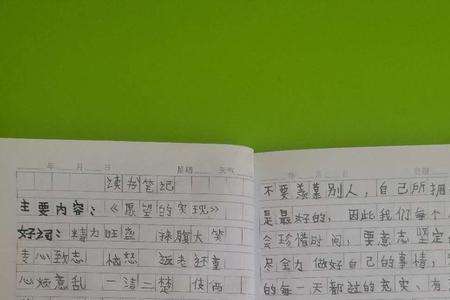 年 月 日 星期 天气
读书笔记
主要内容：《愿望的实现》
好词：精力旺盛 捧腹大笑
专心致志 恼怒 返老还童
心烦意乱 一清二楚
不要羡慕别人，自己所拥
是最好的，因此我们每个
会珍惜时间，要意志坚定
尽全力做好自己的事情，
的每一天都过的充实、有